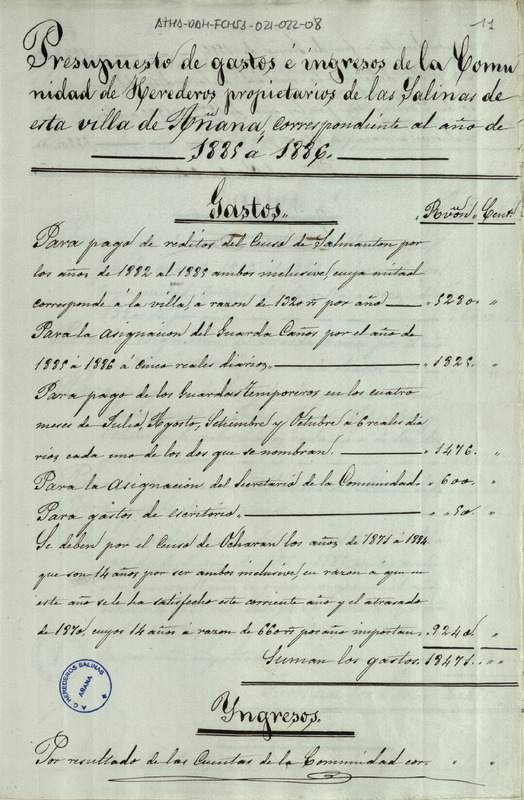 ATHA-DAH-FCHSA-021-022-08
11
Presupuesto de gastos é ingresos de la Comu
nidad de Herederos propietarios de las Salinas de
esta villa de Añana, correspondiente al año de
1885 á 1886.
Gastos.
Rs. vón Cents
Para pago de reditos del Censo de Salmanton por
los años de 1882 al 1885 ambos inclusive, cuya mitad
corresponde á la villa, á razon de 1320 rs por año " 5280. "
Para la asignacion del Guarda Caños por el año de
1885 á 1886 á cinco reales diarios. " 1825. "
Para pago de los Guardas temporeros en los cuatro
meses de Julio, Agosto, Setiembre y Octubre á 6 reales dia
rios cada uno de los dos que se nombran. " 1476. "
Para la asignacion del Secretario de la Comunidad. " 600. "
Para gastos de escritorio. " " 50. "
Se deben por el Censo de Ocharan los años de 1871 á 1884
que son 14 años por ser ambos inclusive, en razon á que en
este año se le ha satisfecho este corriente año y el atrasado
de 1870, cuyos 14 años á razon de 660 rs por año importan " 9240. "
Suman los gastos. 18471. " "
A. C. HEREDEROS SALINAS
AÑANA
Yngresos.
Por resultado de las Cuentas de la Comunidad cor- " "